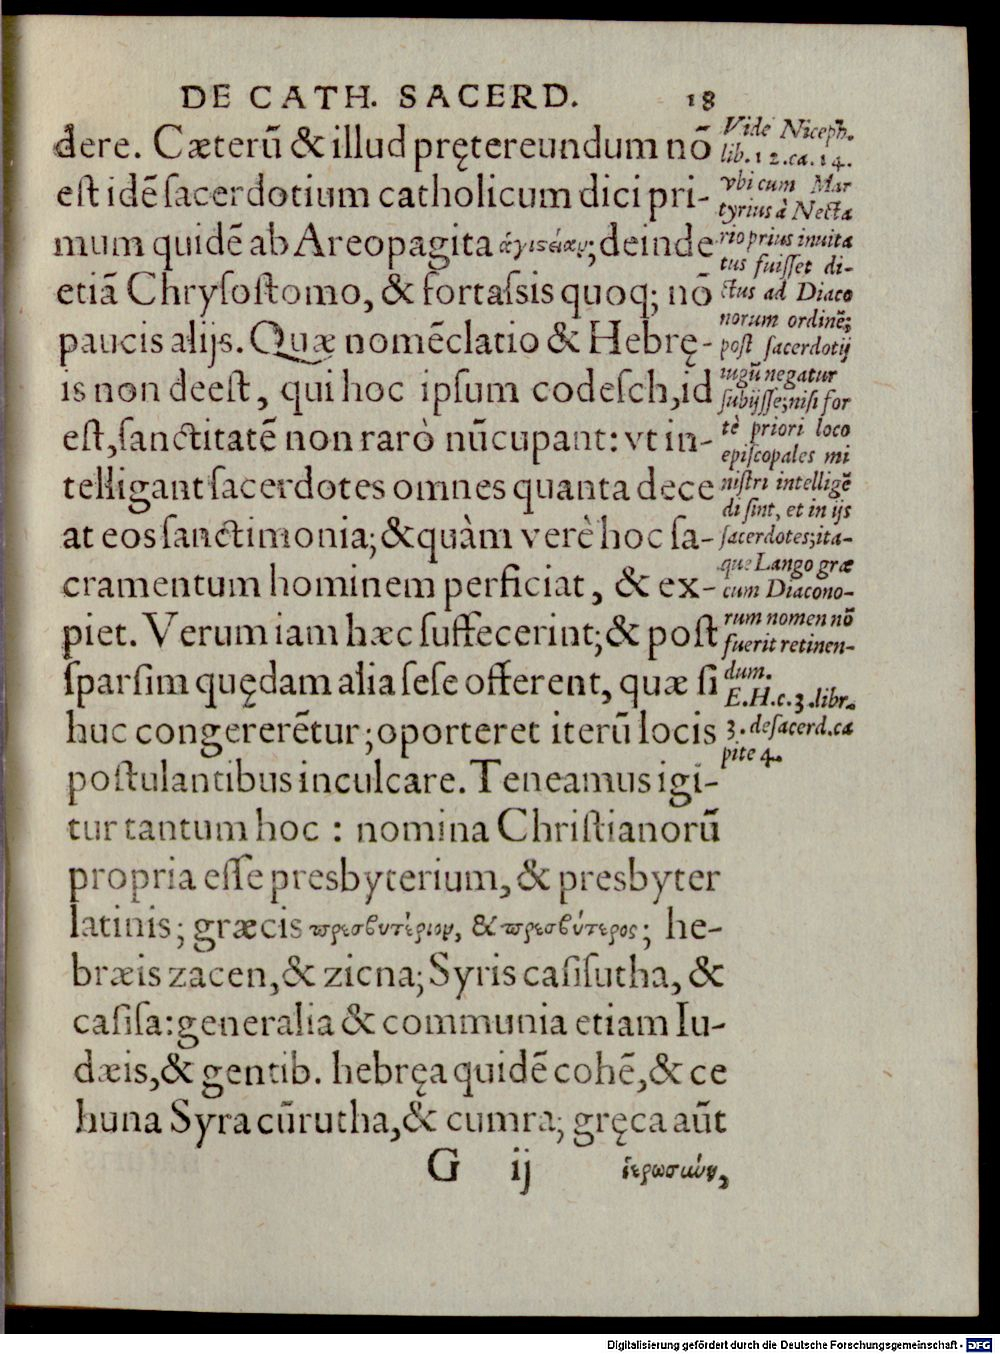 DE CATH. SACERD. 18
dere. Cæterũ & illud prętereundum nõ
est idẽ sacerdotium catholicum dici pri-
mum quidẽ ab Areopagita ; deinde
etiã Chrysostomo, & fortassis quoq; nõ
paucis alijs. Quæ nomẽclatio & Hebrę-
is non deest, qui hoc ipsum codesch, id
est, sanctitatẽ non rarò nũcupant: vt in-
telligant sacerdotes omnes quanta dece
at eos sanctimonia; & quàm verè hoc sa-
cramentum hominem perficiat, & ex-
piet. Verum iam hæc suffecerint; & post
sparsim quędam alia sese offerent, quæ si
huc congererẽtur; oporteret iterũ locis
postulantibus inculcare. Teneamus igi-
tur tantum hoc : nomina Christianorũ
propria esse presbyterium, & presbyter
latinis; græcis πρεσβυτέριον, & πρεσβύτερος; he-
bræis zacen, & zicna; Syris casisutha, &
casisa: generalia & communia etiam Iu-
dæis, & gentib. hebręa quidẽ cohẽ, & ce
huna Syra cũrutha, & cumra; gręca aũt
G ij ἱερωσιύνη,
Vide Niceph.
lib. 12. ca. 14.
vbi cum Mar
tyrius à Necta
rio prius inuita
tus fuisset di-
ctus ad Diaco
norum ordinẽ;
post sacerdotij
iugũ negatur
subijsse; nisi for
tè priori loco
episcopales mi
nistri intelligẽ
di sint, et in ijs
sacerdotes; ita-
que Lango græ
cum Diacono-
rum nomen nõ
fuerit retinen-
dum.
E. H. c. 3. libr.
3. de sacerd. ca
pite 4.
Digitalisierung gefördert durch die Deutsche Forschungsgemeinschaft - DFG